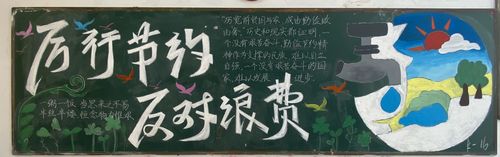 厉行节约
反对浪费
一粥一饭 当思来之不易
半丝半缕 恒念物力维艰
"历览前贤国与家,成由勤俭破
由奢"历史和现实都证明,一
个没有艰苦奋斗,勤俭节约精
神作为支撑的民族,难以自立
自强,一个没有艰苦奋斗的国
家,难以发展 进步。